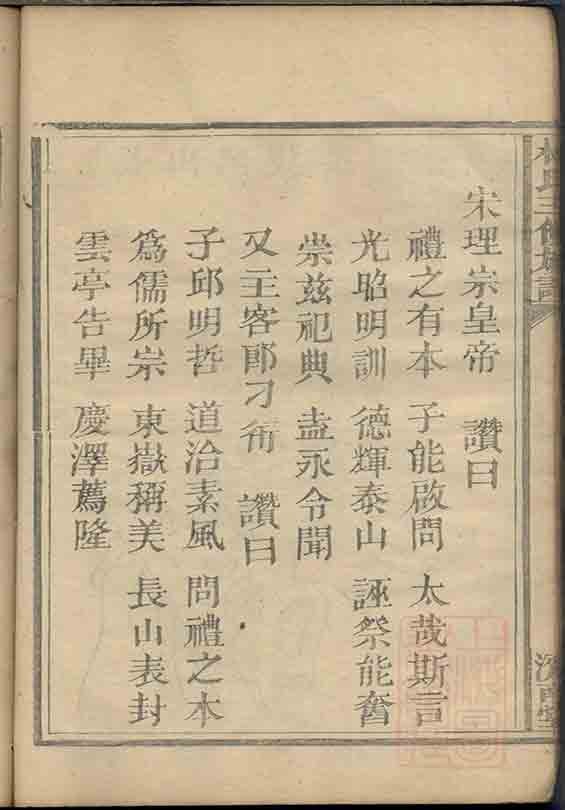 宋理宗皇帝 讚曰
禮之有本 子能啟問 太哉斯言
光昭明訓 德輝泰山 誣祭能奮
崇兹祀典 盍永令聞
又主客郎刁衎 讚曰
子邱明哲 道洽素風 問禮之本
爲儒所宗 東嶽稱美 長山表封
雲亭告畢 慶澤薦隆
林氏三修族譜